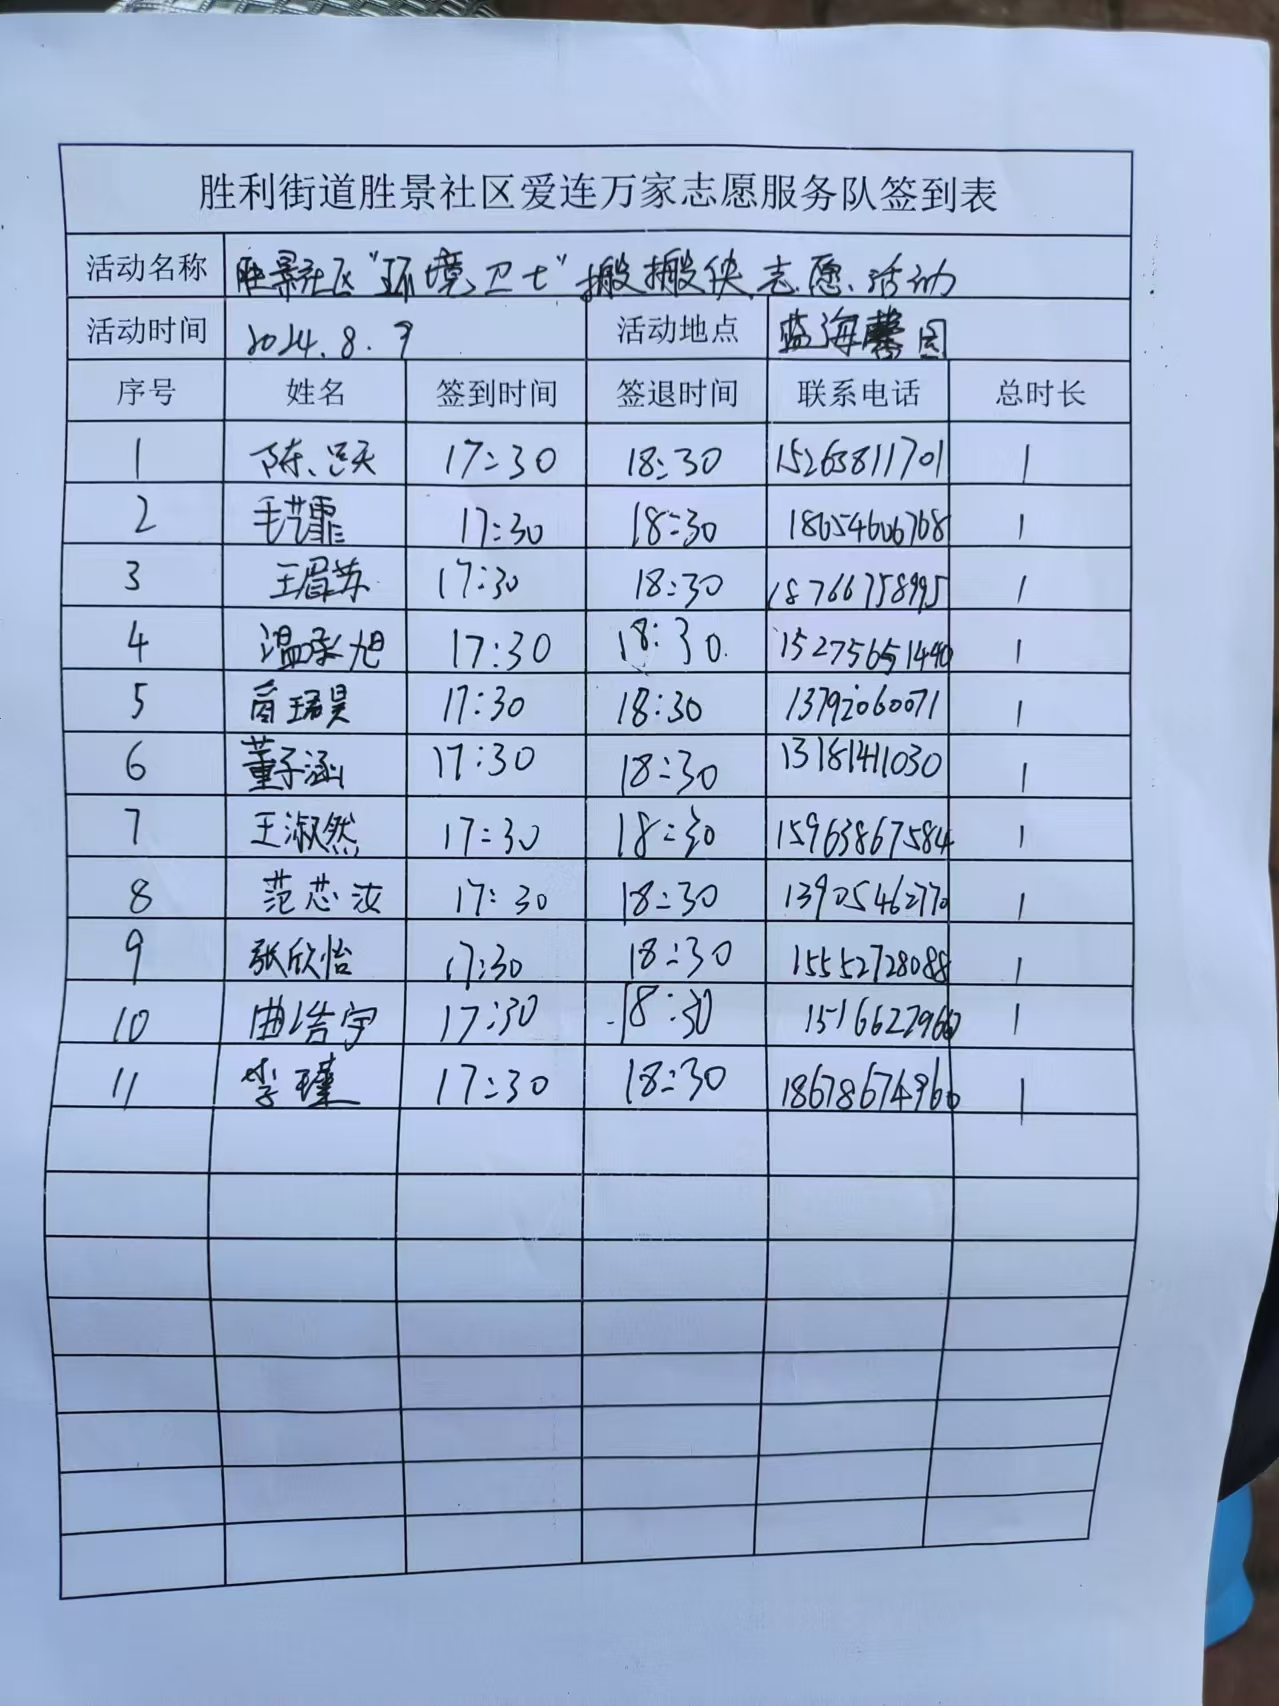 胜利街道胜景社区爱连万家志愿服务队签到表
活动名称 胜景社区"环境卫士"搬搬侠志愿活动
活动时间 2024.8.9 活动地点 蓝海馨园
序号 姓名 签到时间 签退时间 联系电话 总时长
1 陈 17:30 18:30 15263811701 1
2 毛艺霏 17:30 18:30 18654606768 1
3 王眉苏 17:30 18:30 18766758995 1
4 温承旭 17:30 18:30 15275651490 1
5 珺昊 17:30 18:30 13792060071 1
6 董子涵 17:30 18:30 13181411030 1
7 王淑然 17:30 18:30 15963867584 1
8 范芯汝 17:30 18:30 13905462770 1
9 张欣怡 17:30 18:30 15552728088 1
10 曲浩宇 17:30 18:30 15166227960 1
11 李瑾 17:30 18:30 18678674960 1